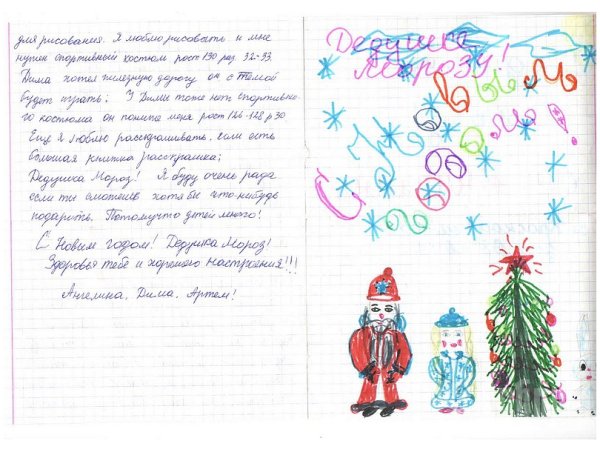 для рисования. Я люблю рисовать и мне
нужен спортивный костюм рост 130 раз. 32-33.
Дима хотел железную дорогу он с Тёмой
будет играть; У Димы тоже нет спортивно-
го костюма он полнее меня рост 126-128 р 30
Еще я люблю расскрашивать, если есть
большая книжка расскрашка;
Дедушка Мороз! Я буду очень рада
если ты сможешь хотя бы что-нибудь
подарить. Потомучто детей много!
С Новым годом! Дедушка Мороз!
Здоровья тебе и хорошего настроения!!!
Ангелина, Дима, Артем!
Дедушке
Морозу!